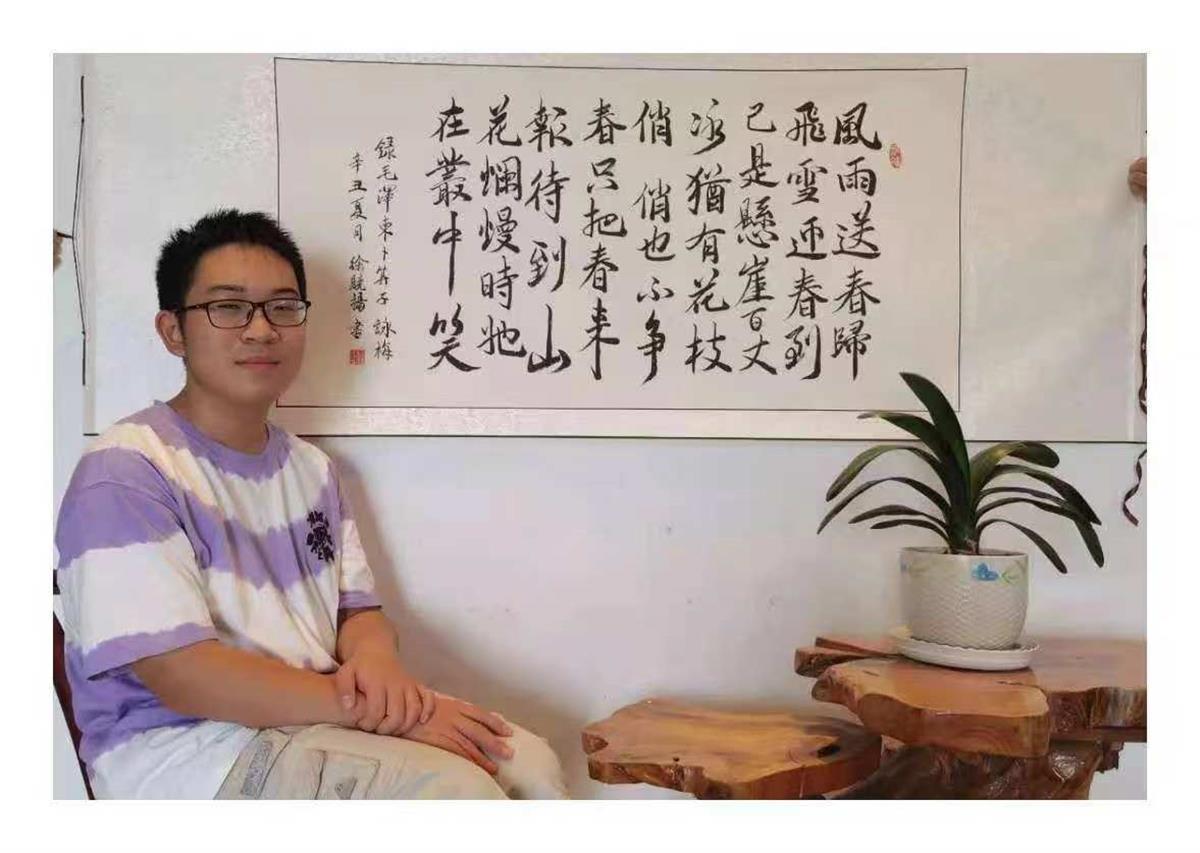 風雨送春歸
飛雪迎春到
已是懸崖百丈
冰猶有花枝
俏 俏也不争
春只把春來
報待到山
花爛熳時她
在叢中笑
録毛澤東卜算子 詠梅
辛丑夏月 徐競揚書